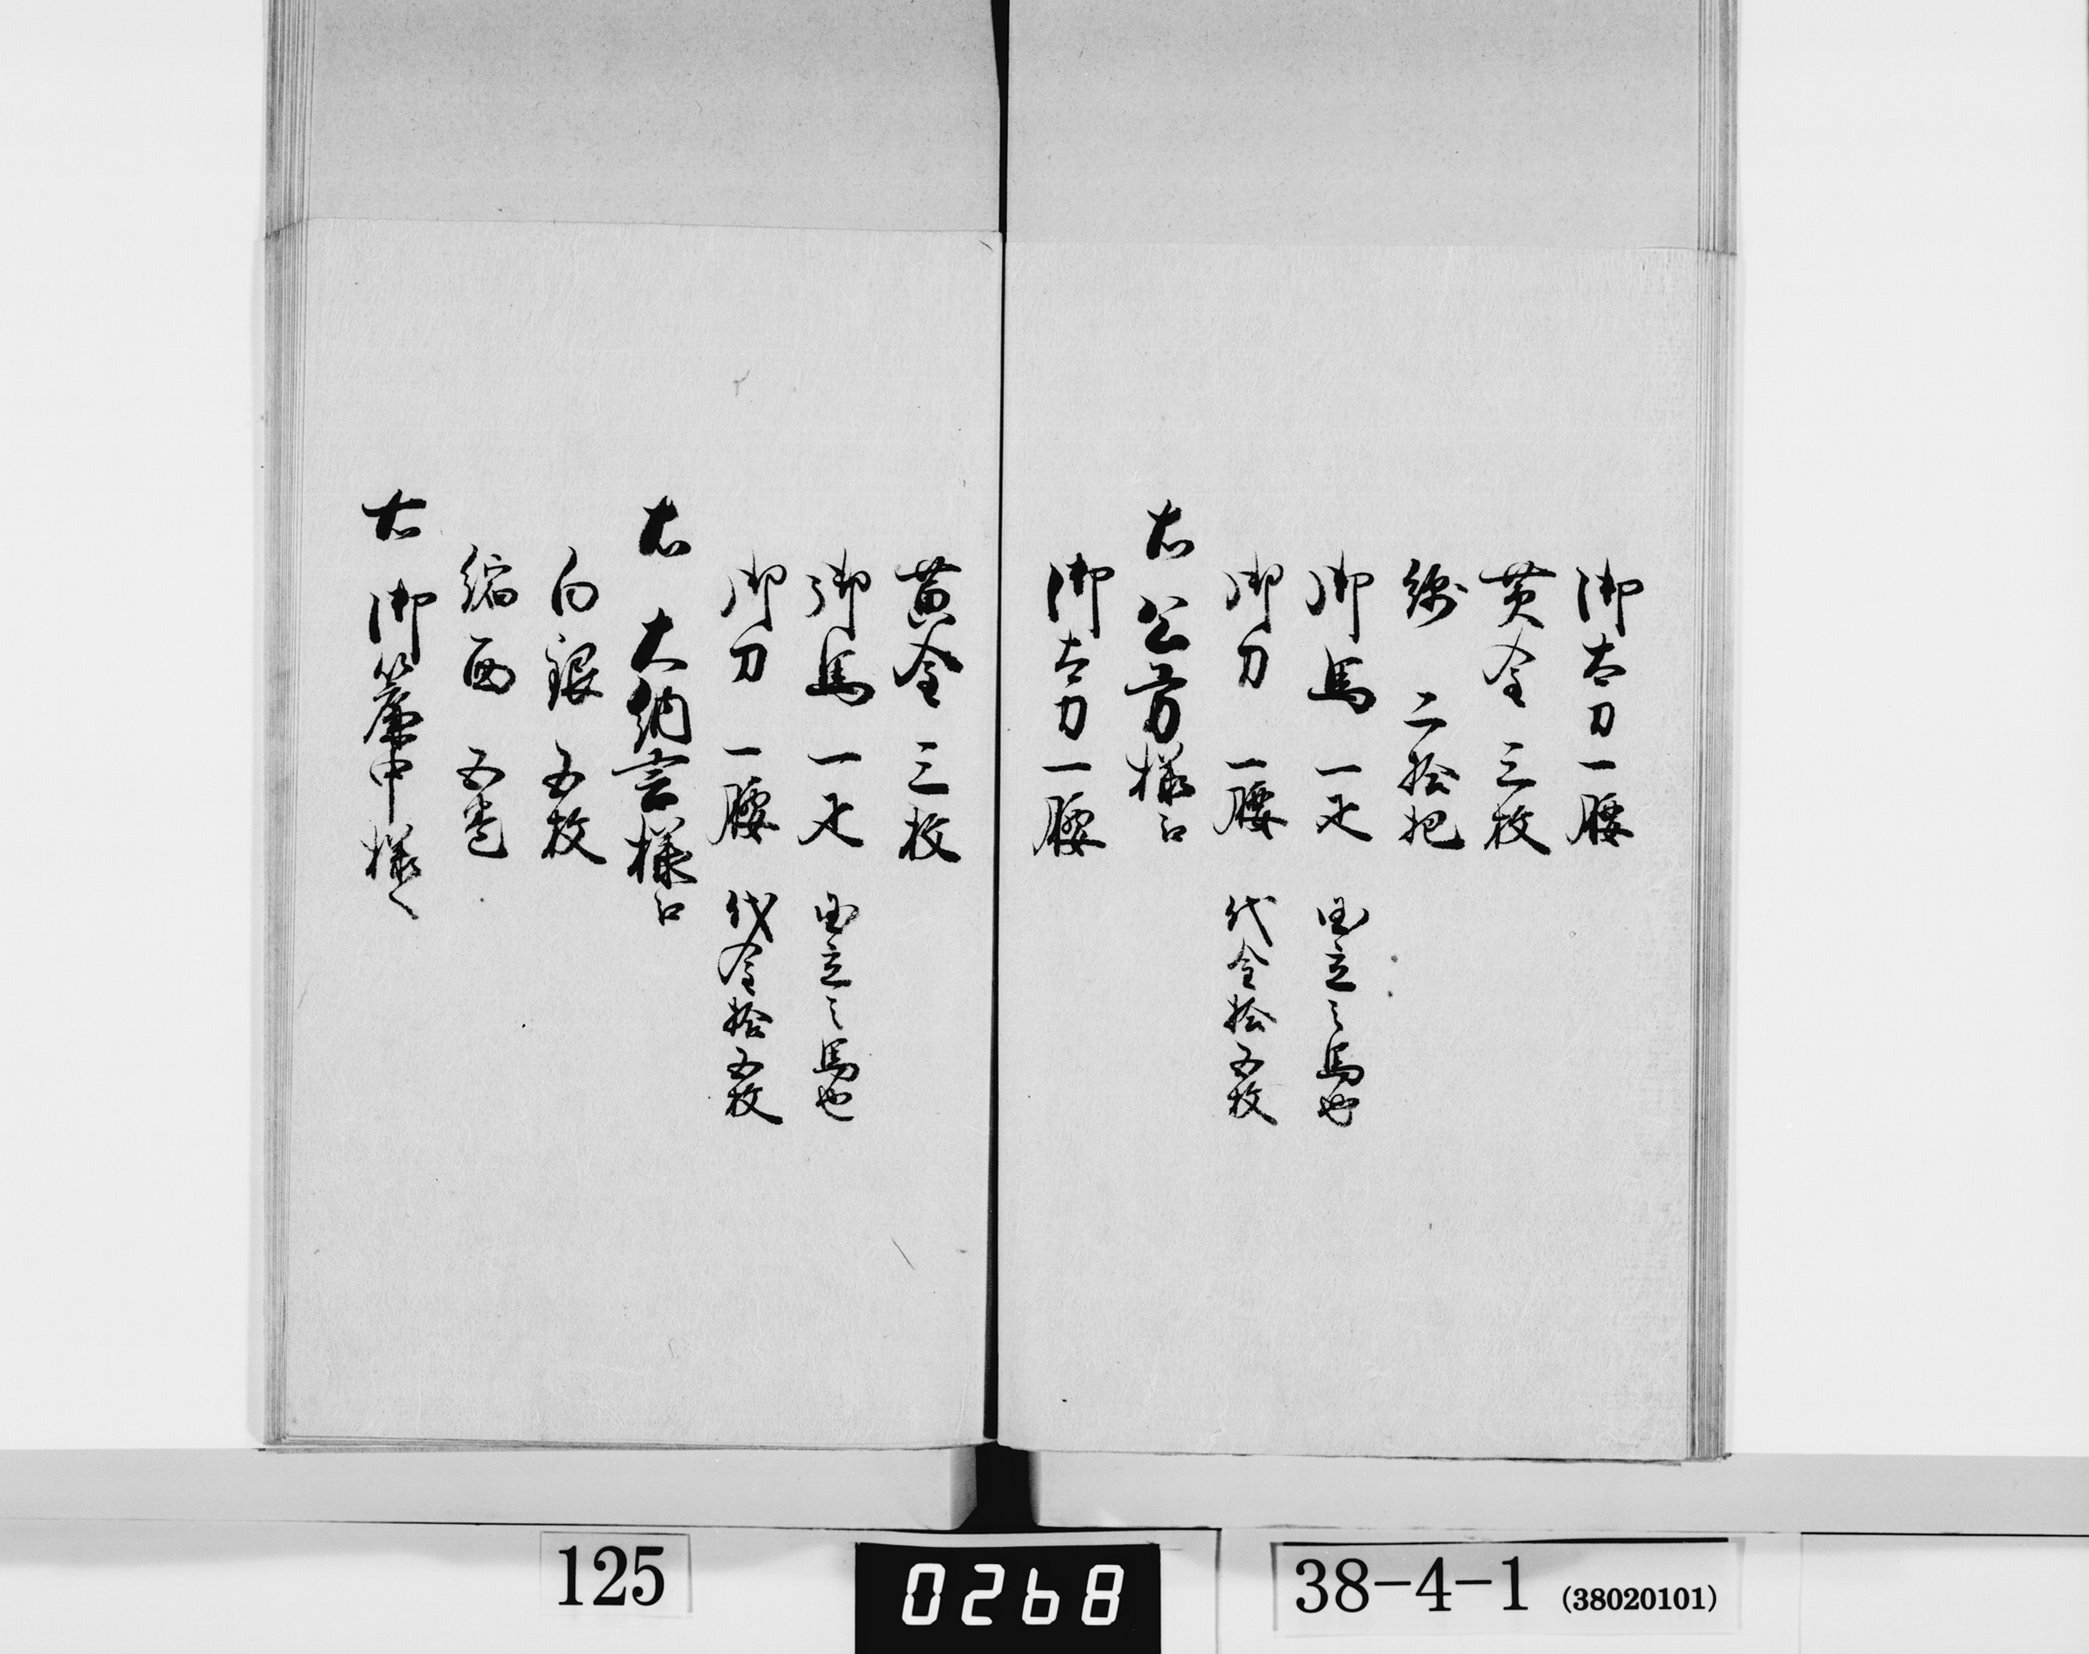 御太刀一腰
黄金 三枚
綿 二拾把
御馬 一疋 国立之馬也
御刀 一腰 代金拾五枚
右公方様江
御太刀一腰
黄金 三枚
御馬 一疋 国立之馬也
御刀 一腰 代金拾五枚
右 大納言様江
白銀 五枚
五巻
右 御簾中様へ
125
0268
38-4-1 (38020101)